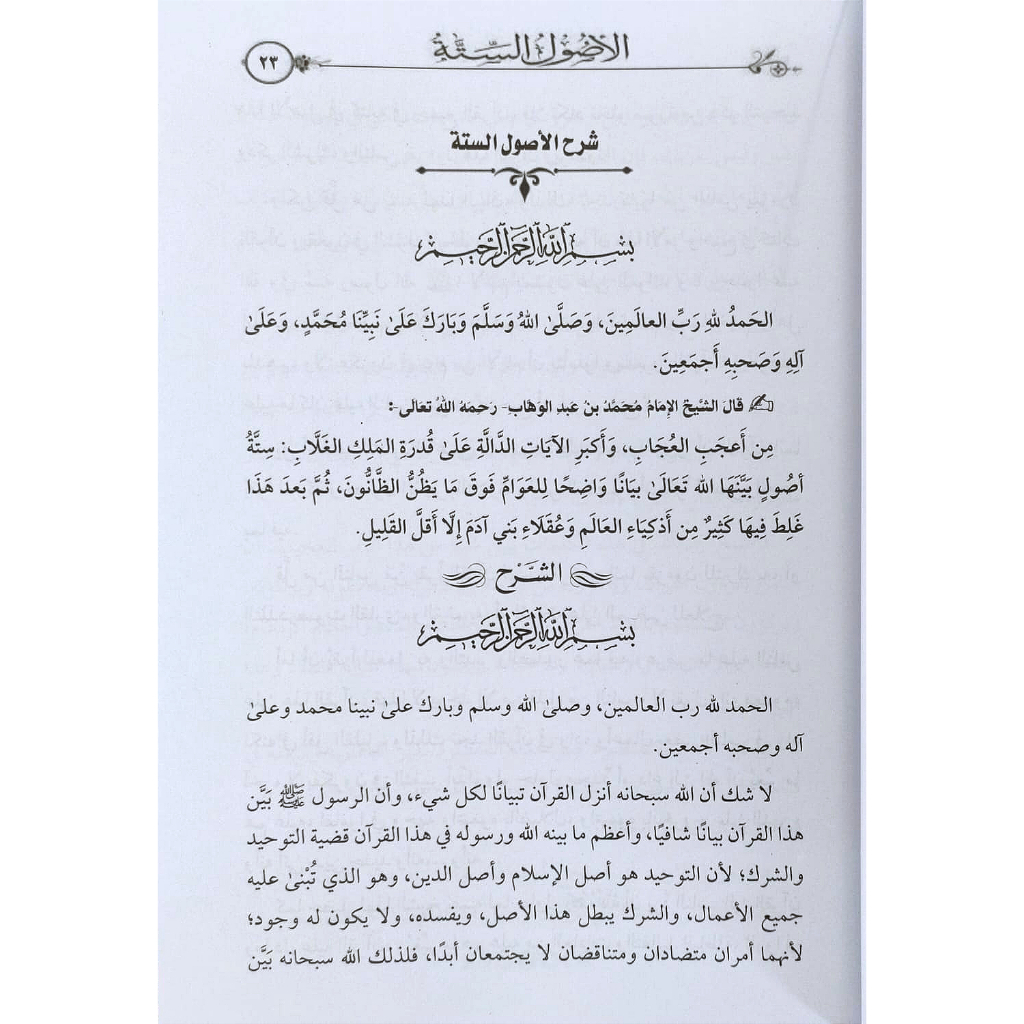 الأصول الستة
٢٣
شرح الأصول الستة
بسم الله الرحمن الرحيم
الحَمدُ للهِ رَبِّ العالَمِينَ، وَصَلَّىٰ اللهُ وَسَلَّمَ وَبَارَكَ عَلَىٰ نَبِيِّنَا مُحَمَّدٍ، وَعَلَىٰ
آلِهِ وَصَحبِهِ أَجمَعِينَ.
قال الشيخ الإمام محمد بن عبد الوهاب- رحمه الله تعالى-:
مِن أَعجَبِ العُجَابِ، وَأَكبَرِ الآيَاتِ الدَّالَّةِ عَلَىٰ قُدرَةِ المَلِكِ الغَلَّابِ: سِتَّةُ
أصُولٍ بَيَّنَهَا الله تَعَالَىٰ بيَانًا وَاضِحًا لِلعَوَامِّ فَوقَ مَا يَظُنُّ الظَّانُّونَ، ثُمَّ بَعدَ هَذَا
غَلِطَ فِيهَا كَثِيرٌ مِن أَذكِيَاءِ العَالَمِ وَعُقَلَاءِ بَني آدَمَ إِلَّا أَقلَّ القَلِيلِ.
الشَّرْح
بسم الله الرحمن الرحيم
الحمد لله رب العالمين، وصلىٰ الله وسلم وبارك علىٰ نبينا محمد وعلىٰ
آله وصحبه أجمعين.
لا شك أن الله سبحانه أنزل القرآن تبيانًا لكل شيء، وأن الرسول ﷺ بَيَّن
هذا القرآن بيانًا شافيًا، وأعظم ما بينه الله ورسوله في هذا القرآن قضية التوحيد
والشرك؛ لأن التوحيد هو أصل الإسلام وأصل الدين، وهو الذي تُبْنىٰ عليه
جميع الأعمال، والشرك يبطل هذا الأصل، ويفسده، ولا يكون له وجود؛
لأنهما أمران متضادان ومتناقضان لا يجتمعان أبدًا، فلذلك الله سبحانه بَيَّن